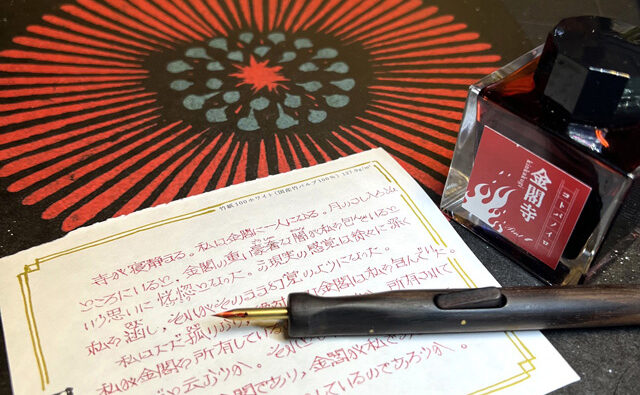 竹紙100ホワイト(国産竹パルプ100%) 127.9g/m²
寺が寝静まる。私は金閣に一人になる。月のさし入らぬ
ところにいると、金閣の重い豪奢な闇が私を包んでいると
いう思いに恍惚となった。この現実の感覚は徐々に深く
私を涵し、それがそのまま幻覚のようになった。
私はただ孤りおり、金閣は私を包んでいた。
私が金閣を所有している 所有されて
と云おうか。それ
金閣であり、金閣が私で
しているのであろうか。
金閣寺
kinkakuji
コトバノイロ